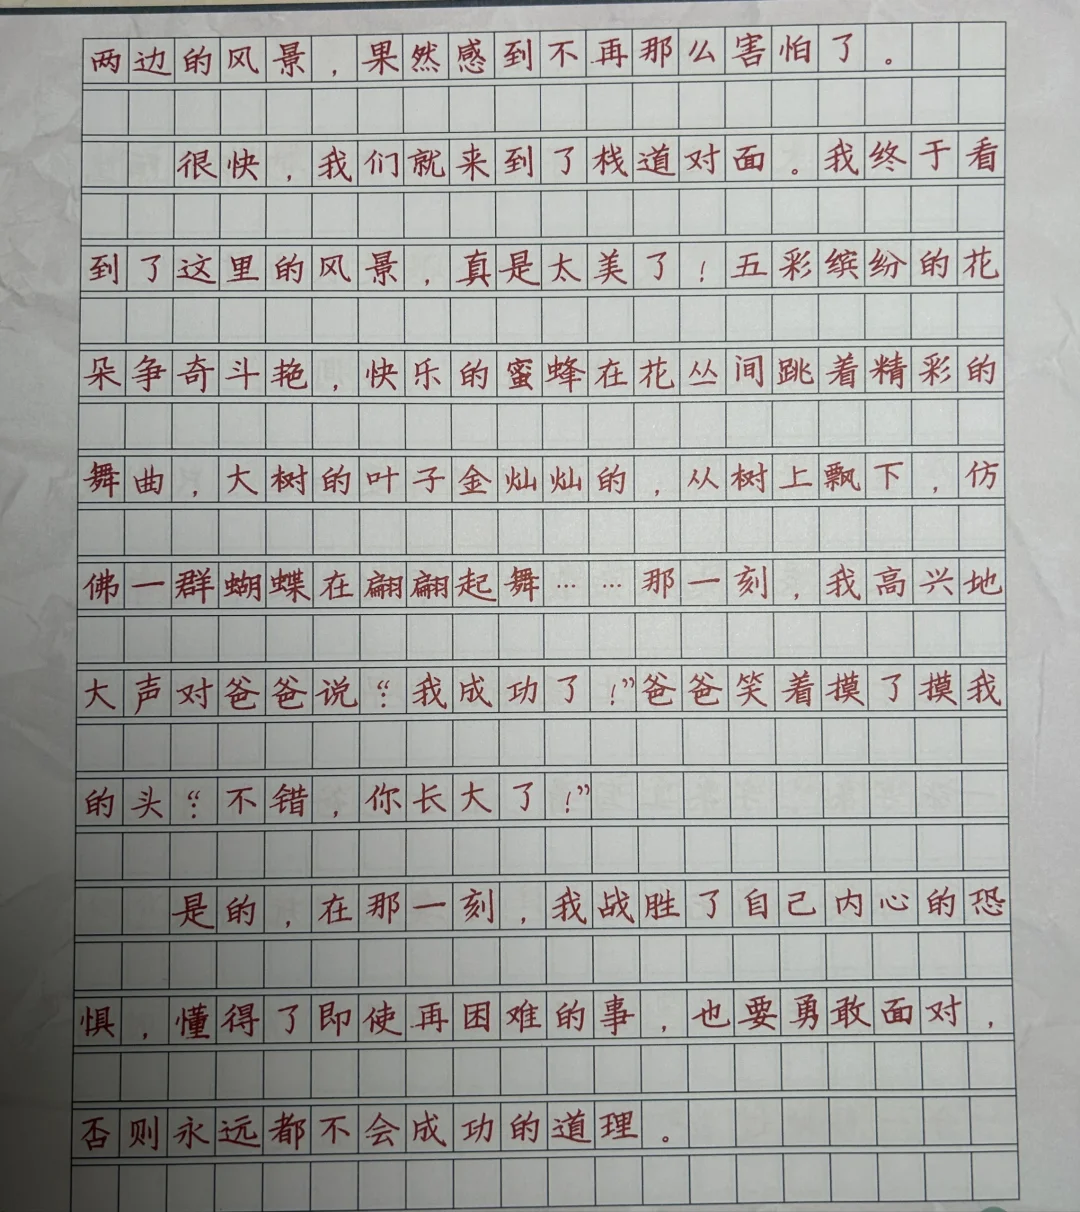 两边的风景，果然感到不再那么害怕了。
很快，我们就来到了栈道对面。我终于看
到了这里的风景，真是太美了！五彩缤纷的花
朵争奇斗艳，快乐的蜜蜂在花丛间跳着精彩的
舞曲，大树的叶子金灿灿的，从树上飘下，仿
佛一群蝴蝶在翩翩起舞……那一刻，我高兴地
大声对爸爸说：“我成功了！”爸爸笑着摸了摸我
的头：“不错，你长大了！”
是的，在那一刻，我战胜了自己内心的恐
惧，懂得了即使再困难的事，也要勇敢面对，
否则永远都不会成功的道理。